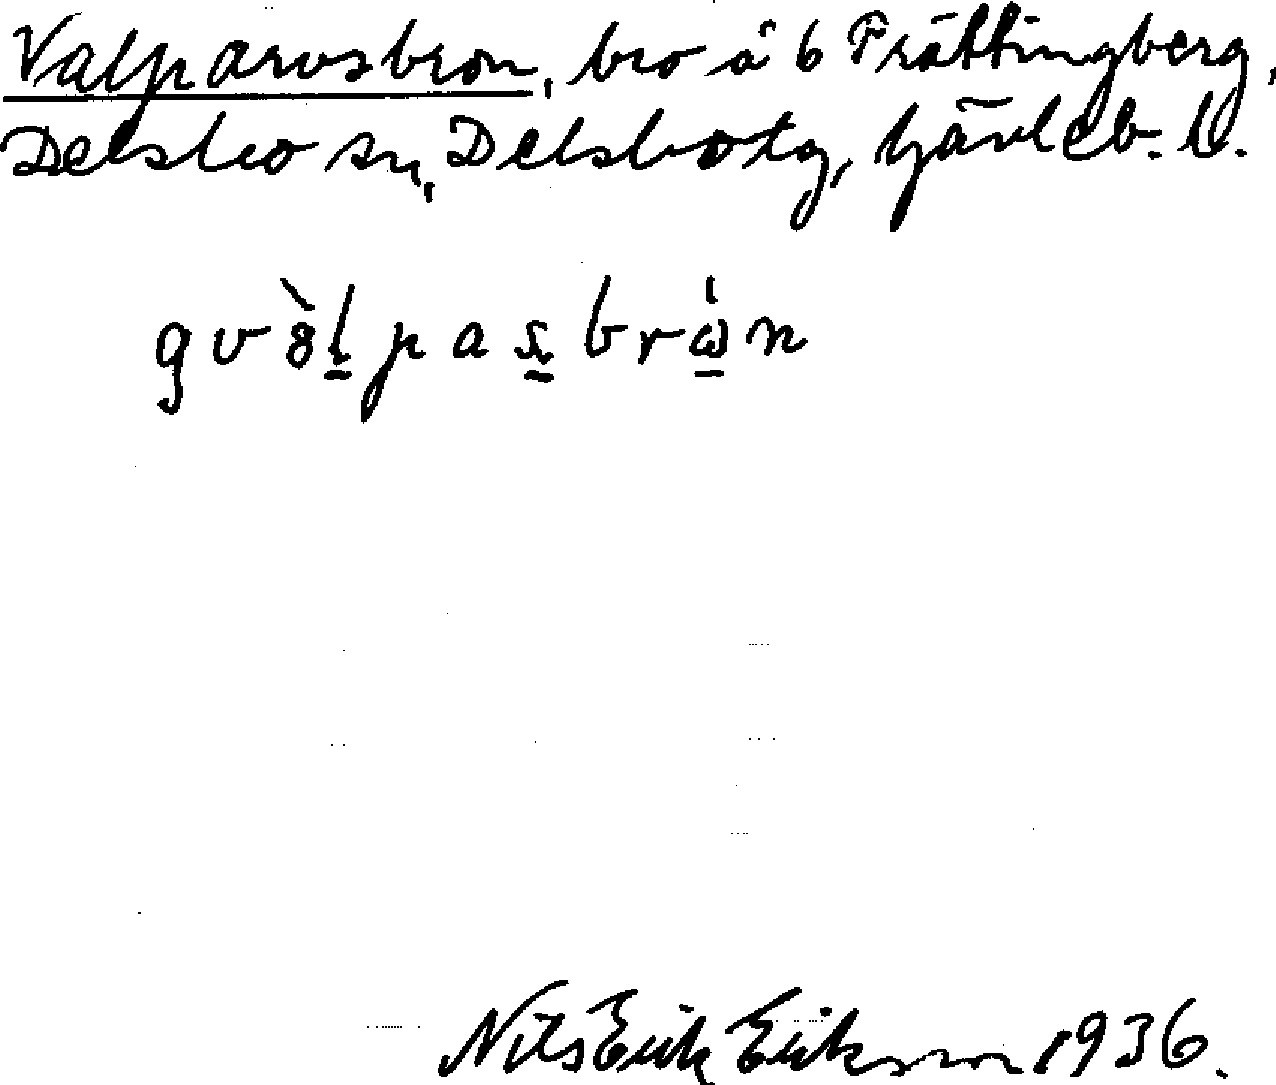 Valparvsbron, bro å b Prättingberg,
Delsbo sn, Delsbo tg, Gävleb. l.
gvòlpasbrώn
Nils Erik Erikson 1936.